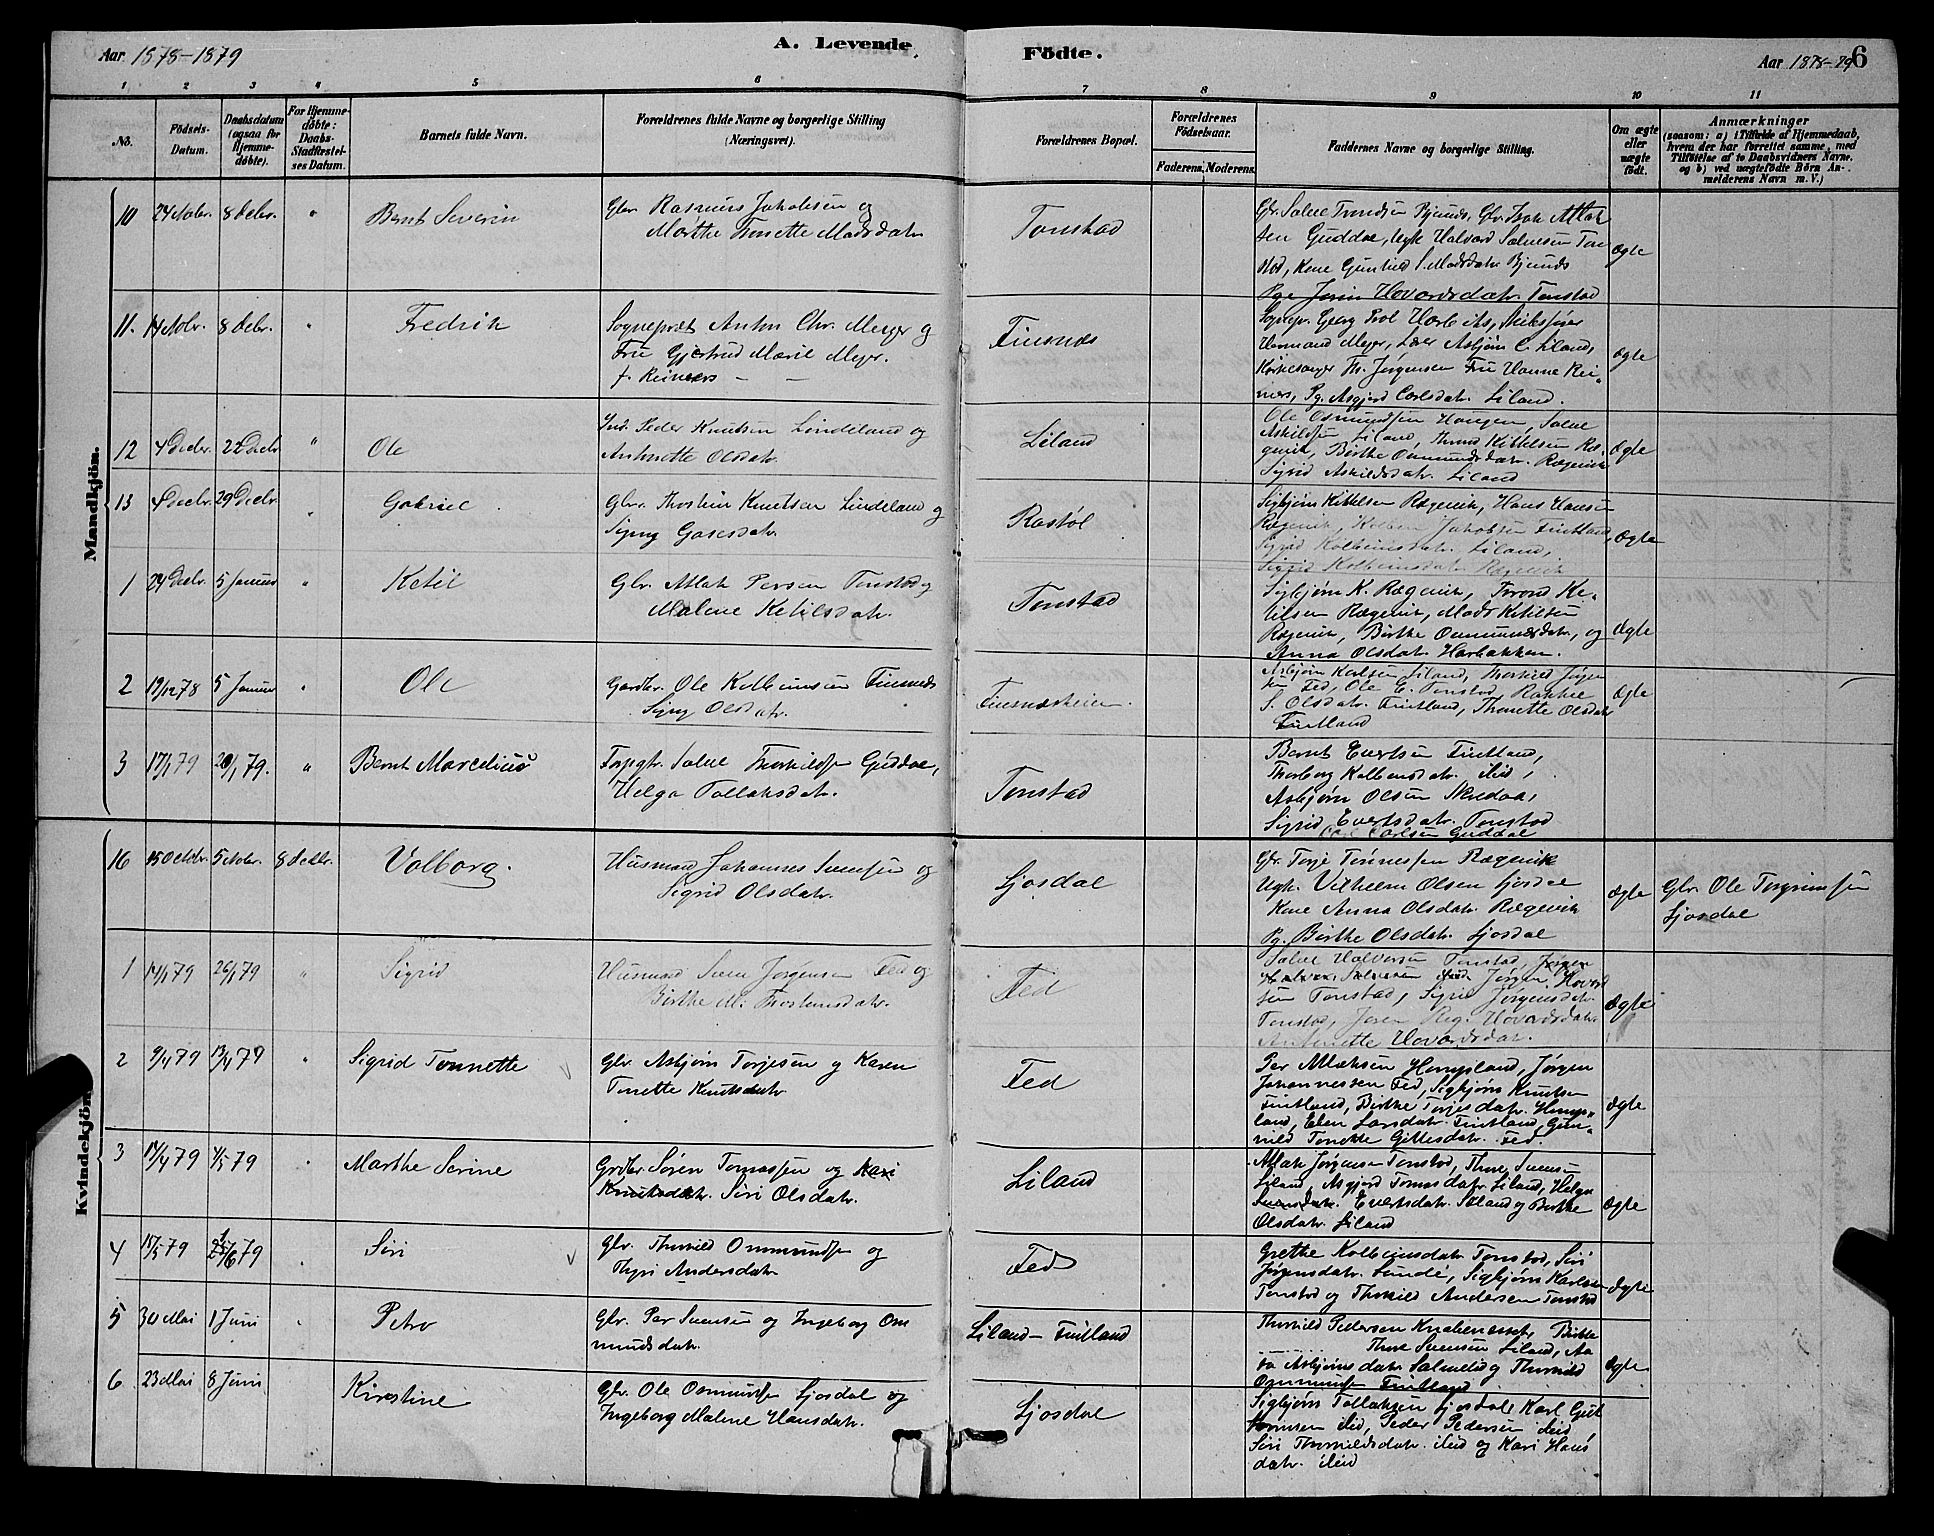 Aar 1878-1879
A. Levende
Födte.
Aar 1878-79
6
1 2 3 4 5 6 7 8 9 10 11
No.
Födsels-Datum.
Daabsdatum (ogsaa for Hjemme-döbte).
For Hjemme-döbte: Daabs-Stadfæstel-ses Datum.
Barnets fulde Navn.
Forældrenes fulde Navne og borgerlige Stilling (Næringsvei).
Forældrenes Bopæl.
Forældrenes Födselsaar.
Faderens. Moderens.
Faddernes Navne og borgerlige Stilling.
Om ægte eller uægte födt.
Anmærkninger
(saasom: a) i Tilfælde af Hjemmedaab, hvem der har forrettet samme, med Tilföielse af to Daabsvidners Navne, og b) ved uægtefödte Börn An-melderens Navn m. V.)
Mandkjön.
10 24 Nobr. 8 Debr. " Bernt Severin
Gbr. Rasmus Jakobsen og
Marthe Tonette Madsdatr.
Tonstad
Gbr. Salve Trondsen Bjunds, Gbr. Isak Atlak
sen Guddal, Ugk Halvard Salvesen Ton
stad, Kone Gunhild S. Madsdatr Bjunds
Pge Jorin Hovardsdatr. Tonstad
Ægte
11. 14 Nobr. 8 Debr. " Fredrik
Sognepræt Anton Chr. Meyer og
Fru Gjertrud Marie Meyer.
f. Reiners -
Finsnæs
Hermand Meyer, Lærer Asbjørn C. Liland,
Kirkesanger Th. Jørgensen Fru Hanne Rei-
ners, Pg. Asgjerd Carlsdatr. Liland.
Ægte
12 4 Decbr. 22 Decbr " Ole
Ind. Peder Knutsen Lindeland og
Antonette Olsdatr.
Liland
Ole Osmundsen Haugen, Salve
Askildsen Liland, Thrond Kittelsen Ræ-
gevik, Birthe Ommundsdatr. Rægevik
Sigrid Askildsdatr. Liland
Ægte
13 4 Decbr. 29 Decbr. " Gabriel
Gbr. Thostein Knutsen Lindeland og
Signy Gasesdatr.
Rostøl
Sigbjørn Kittelsen Rægevik, Hans Hansen
Rægevik, Kolben Jakobsen Fintland,
Sigrid Kolbeinsdatr. Liland,
Sigrid Kolbeinsdatr. Rægevik
Ægte
1 24 Decbr. 5 Januar " Ketil
Gbr. Atlak Persen Tonstad og
Malene Ketilsdatr.
Tonstad
Sigbjørn K. Rægevik, Trond Ke-
tilsen Rægevik, Mads Ketilsen
Rægevik, Birthe Ommundsdatr, og
Anna Olsdatr. Harbakken.
Ægte
2 19/12 78 5 Januar " Ole
Gardbr. Ole Kolbeinsen Finsnæs
Signy Olsdatr.
Finsnæsheien.
Asbjørn Karlsen Liland, Thorkild Jørgen
sen Fed, Ole E. Tonstad, Rakkel
S. Olsdatr. Fintland, Thonette Olsdatr
Fintland
Ægte
3 17/1 79 20/1 79. " Bernt Marcelius
Forpgtr. Salve Thorkilds. Guddal,
Helga Tollaksdatr.
Tonstad
Bernt Evertsen Fintland,
Thorborg Kolbensdatr. ibid,
Asbjørn Olsen Skredaa,
Sigrid Evertsdatr. Tonstad
Carlsen Guddal
Kvindekjön.
16 15 Octobr. 5 Nobr. 8 Decbr. Valborg.
Husmand Johannes Svendsen og
Sigrid Olsdatr.
Ljosdal
Gbr. Terje Tønnessen Rægevik
Ugk. Vilhelm Olsen Ljosdal
Kone Anna Olsdatr. Rægevik
Pg. Birthe Olsdatr. Ljosdal
Ægte
Gbr. Ole Torgrimsen
Ljosdal
1 14/1 79 26/1 79 " Sigrid
Husmand Sven Jørgensen Fed og
Birthe M. Thosteinsdatr.
Fed
Salve Halvorsen Tonstad, Jørgen
Halvor Salvesen ibid. Jørgen Hovard
sen Tonstad, Sigrid Jørgensdatr.
Tonstad, Joren Reg. Hovardsdatr.
Antonette Hovardsdatr.
Ægte
2 9/4 79 13/4 79 " Sigrid Tonnette
Gbr. Asbjørn Terjesen og Karen
Tonette Knutsdatr
Fed
Per Atlaksen Hompland, Jørgen
Johannessen Fed, Sigbjørn Knutsen
Fintland, Birthe Terjesdatr. Homp-
land, Elen Larsdatr. Fintland, Gun-
nild Tonette Gittesdatr. Fed.
Ægte
3 17/4 79 4/5 79 " Marthe Serine
Grdbr. Søren Tomassen og Kari
Knutsdatr. Siri Olsdatr.
Liland
Atlak Jørgensen Tonstad, Thore Svensen
Liland, Asgjerd Tomasdatr. Liland, Helga
Svensdatr. Evertsdatr. Liland og Birthe
Olsdatr. Liland
Ægte
4 15/5 79 /6 79 Siri
Gbr. Thorkild Ommundsen og
Thyri Andersdatr
Fed
Grethe Kolbeinsdatr Tonstad, Siri
Jørgensdatr. Lunde, Sigbjørn Karlsen
Tonstad og Thorkild Andersen Tonstad
Ægte
5 30 Mai 1 Juni " Petra
Gbr. Per Svensen og Ingeborg Om
mundsdatr
Liland - Fintland
Thorkild Pedersen Knabenesset, Birthe
Thore Svensen Liland, Aa
sa Asbjørnsdatr Salmelid og Thorkild
Ommundsen Fintland
Ægte
6 23 Mai 8 Juni Kirstine
Gbr. Ole Osmundsen Ljosdal og
Ingeborg Malene Hansdatr.
Ljosdal
Sigbjørn Tollaksen Ljosdal Karl Gut
tormsen ibid, Peder Pedersen ibid
Siri Thorkildsdatr. ibid og Kari Hans
datr. ibid